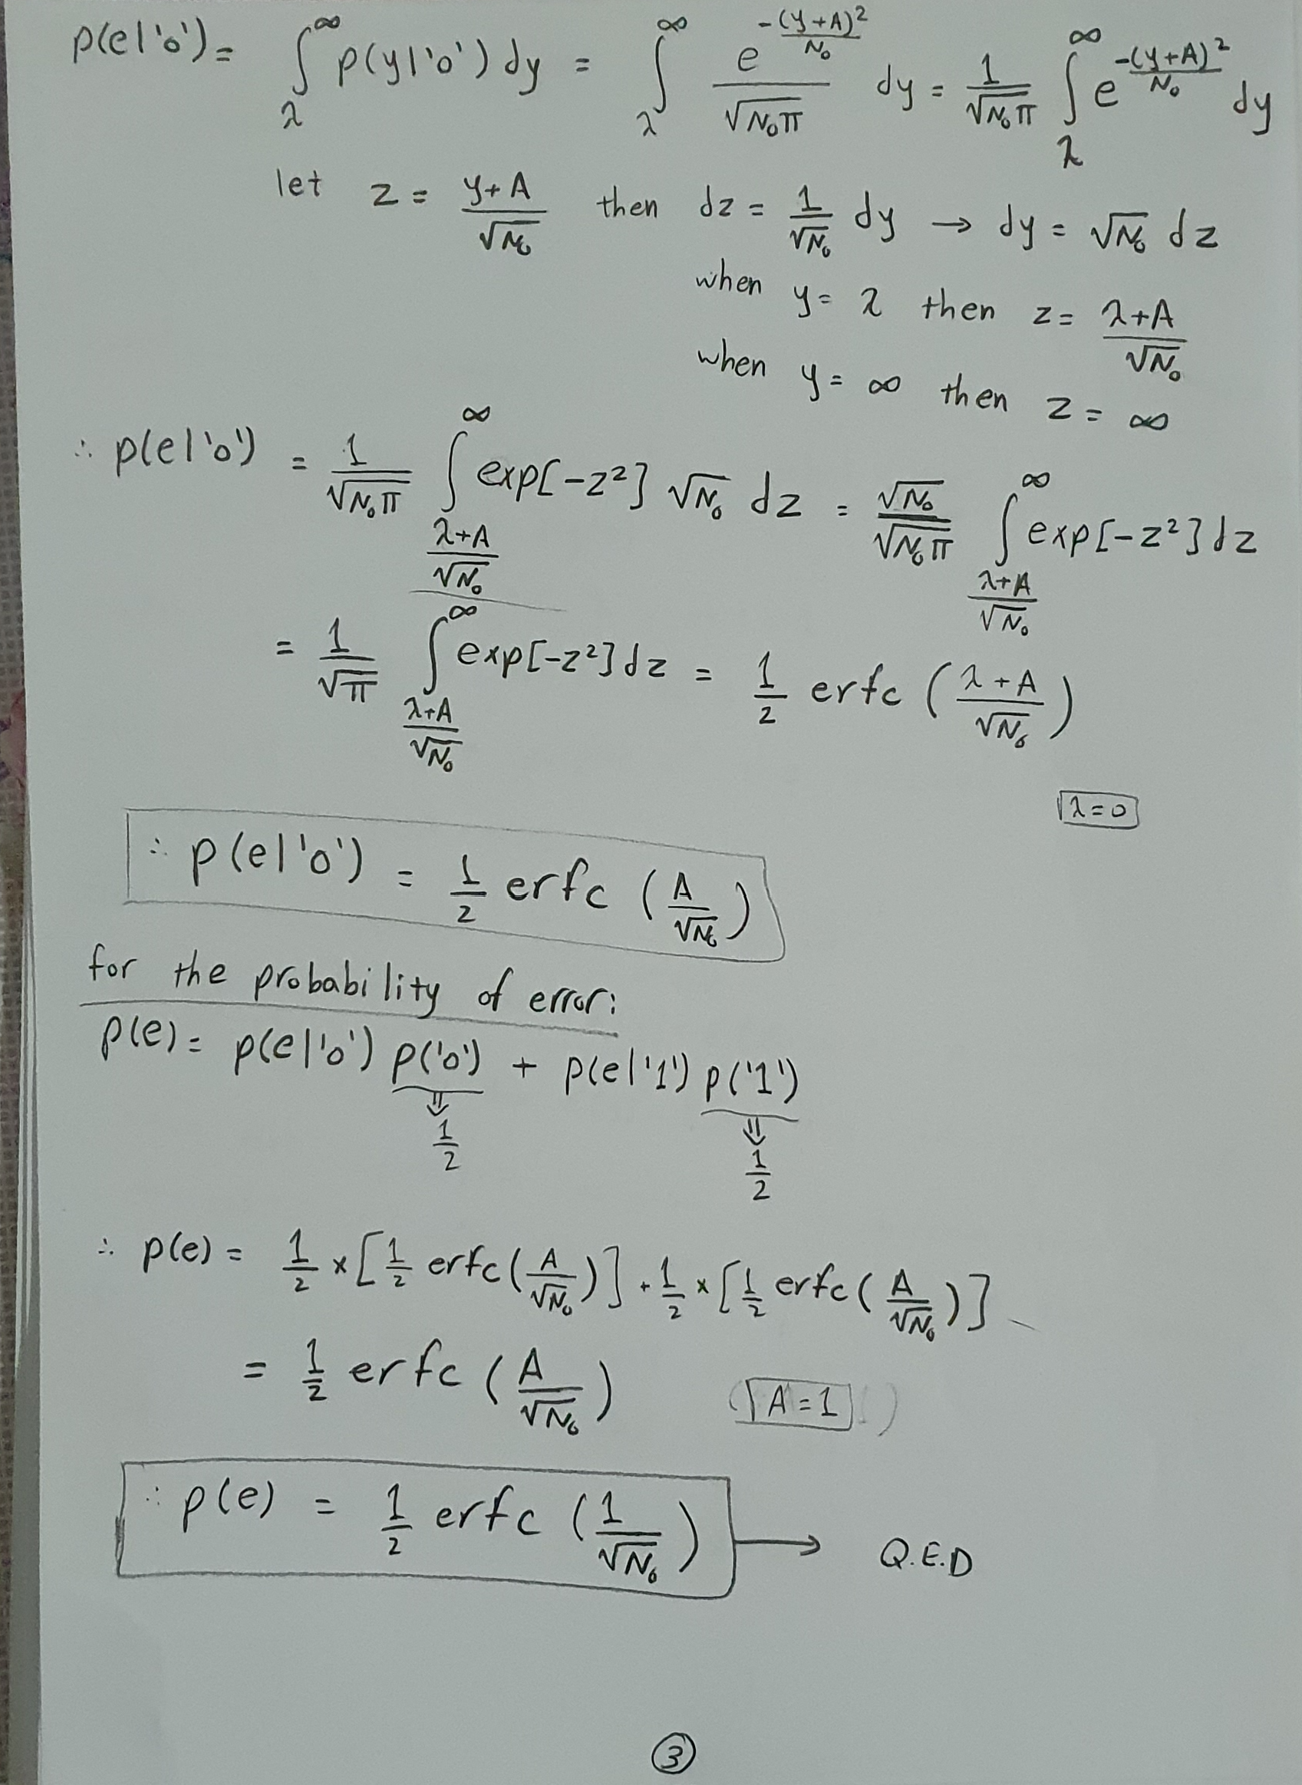 p(e|'0') = ∫_λ^∞ p(y|'0') dy = ∫_λ^∞ e^{-(y+A)²/N₀} / √(N₀π) dy = 1/√(N₀π) ∫_λ^∞ e^{-(y+A)²/N₀} dy
let z = (y+A)/√N₀ then dz = 1/√N₀ dy → dy = √N₀ dz
when y = λ then z = (λ+A)/√N₀
when y = ∞ then z = ∞
∴ p(e|'0') = 1/√(N₀π) ∫_{(λ+A)/√N₀}^∞ exp[-z²] √N₀ dz = √N₀/√(N₀π) ∫_{(λ+A)/√N₀}^∞ exp[-z²] dz
= 1/√π ∫_{(λ+A)/√N₀}^∞ exp[-z²] dz = 1/2 erfc ((λ+A)/√N₀)
λ=0
∴ p(e|'0') = 1/2 erfc (A/√N₀)
for the probability of error:
p(e) = p(e|'0') p('0') + p(e|'1') p('1')
⇓ ⇓
1/2 1/2
∴ p(e) = 1/2 × [1/2 erfc(A/√N₀)] + 1/2 × [1/2 erfc(A/√N₀)]
= 1/2 erfc (A/√N₀) (A=1)
∴ p(e) = 1/2 erfc (1/√N₀) → Q.E.D
3